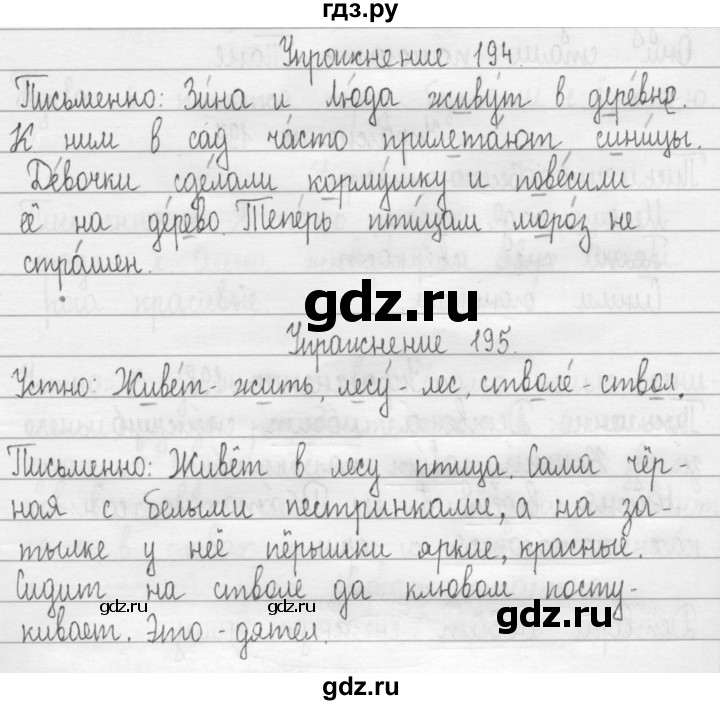 гдз.ру
Упражнение 194.
Письменно: Зи́на и Лю́да живу́т в дере́вне.
К ним в сад ча́сто прилета́ют сини́цы.
Де́вочки сде́лали корму́шку и пове́сили
её на де́рево. Тепе́рь пти́цам моро́з не
стра́шен.
gdz.ru
Упражнение 195.
Устно: Живёт - жить, лесу́ - лес, стволе́ - ствол.
Письменно: Живёт в лесу птица. Сама чёр-
ная с белыми пестринками, а на за-
тылке у неё пёрышки яркие, красные.
Сидит на стволе да клювом посту-
gdz.ru
gdz.ru
gdz.ru
кивает. Это - дятел.
gdz.ru